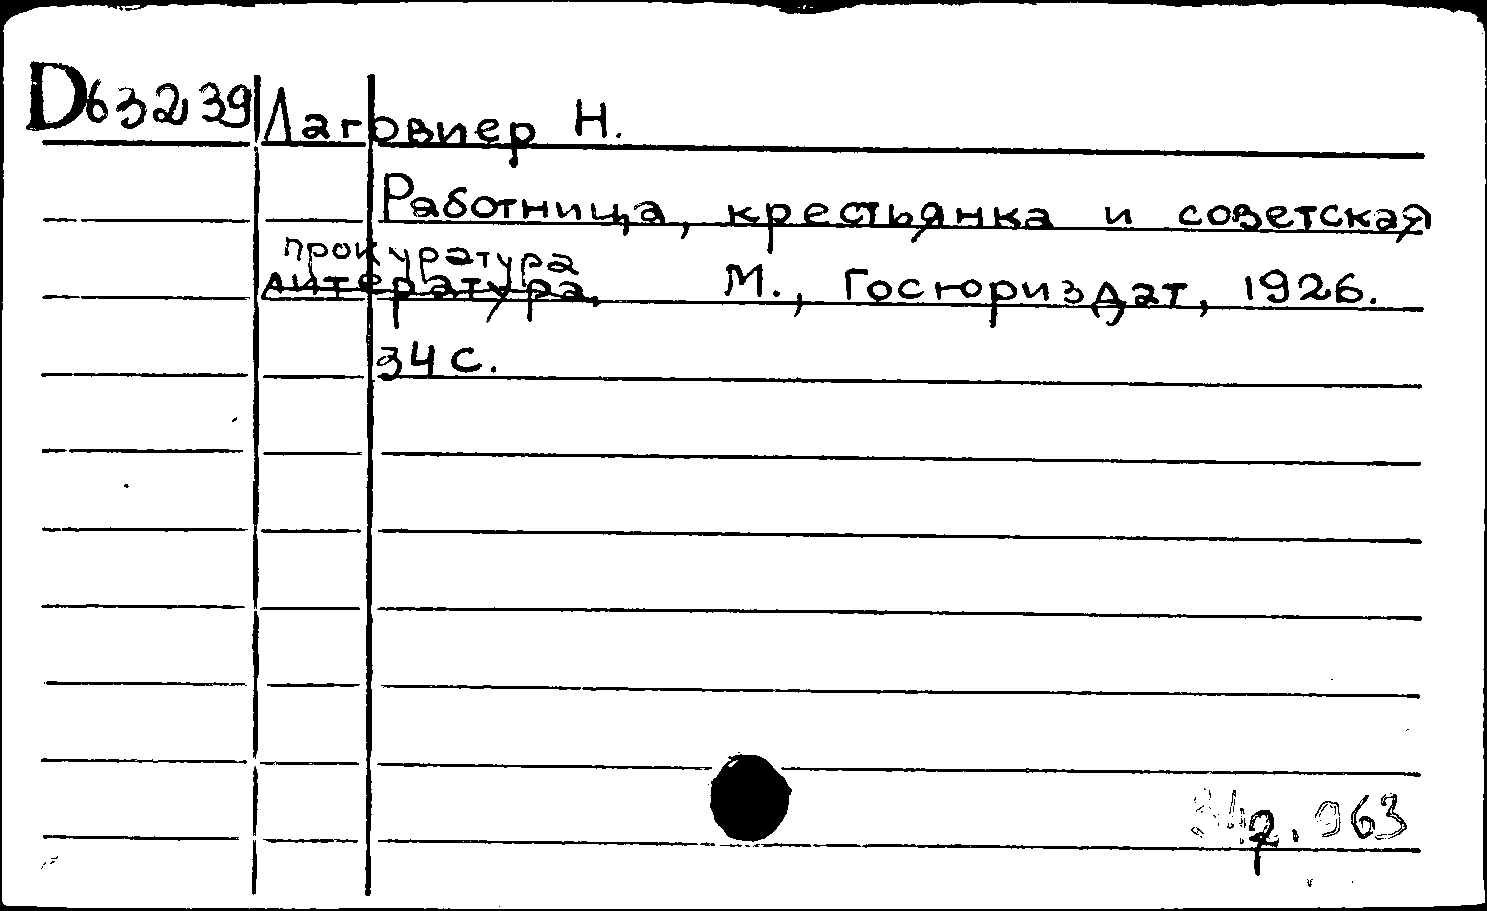 D63239 Лаговиер Н.
Работница, крестьянка и советская
прокуратура
литература, М., Госюриздат, 1926.
34 с.
963